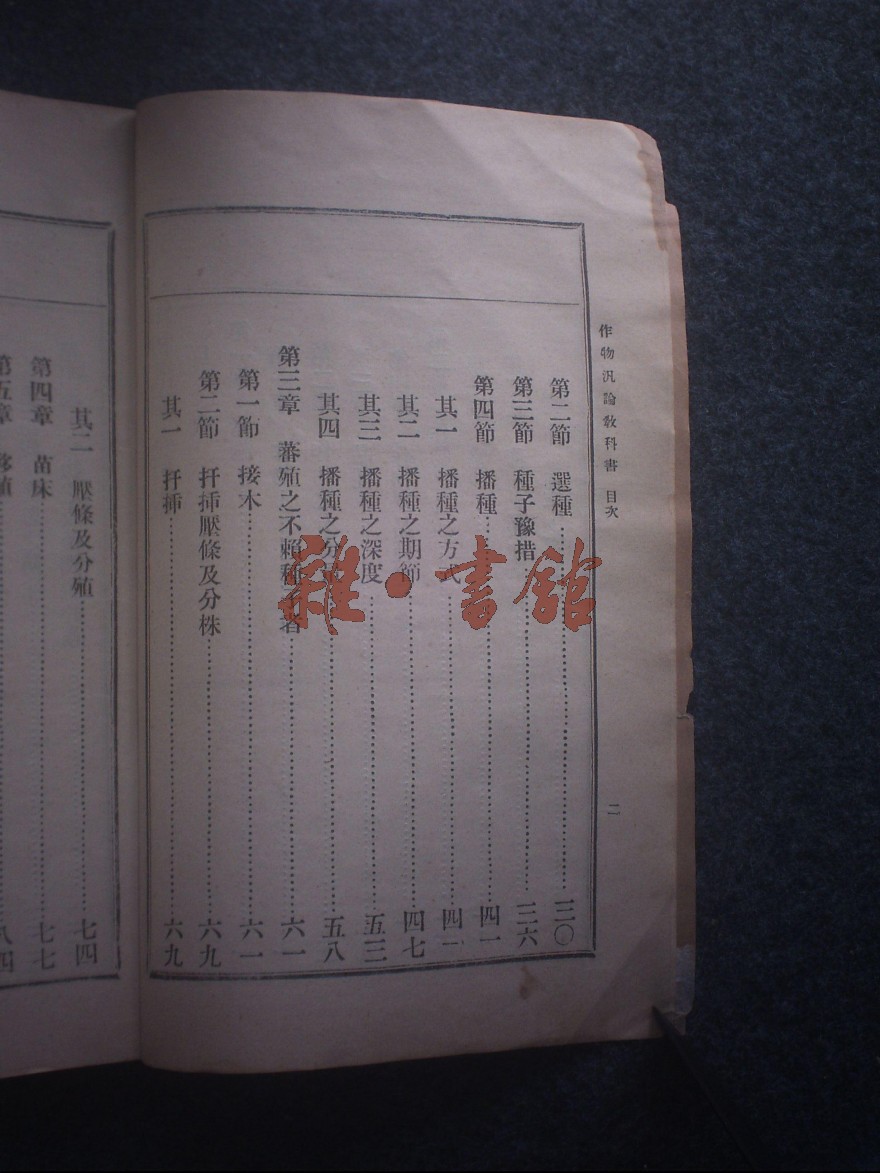 作物汎論教科書 目次
二
第二節 選種 三〇
第三節 種子豫措 三六
第四節 播種 四一
其一 播種之方式 四一
其二 播種之期節 四七
其三 播種之深度 五三
其四 播種之分 五八
第三章 蕃殖之不賴種子者 六一
第一節 接木 六一
第二節 扦揷壓條及分株 六九
其一 扦揷 六九
其二 壓條及分殖 七四
第四章 苗床 七七
第五章 移殖 八四
雜·書館